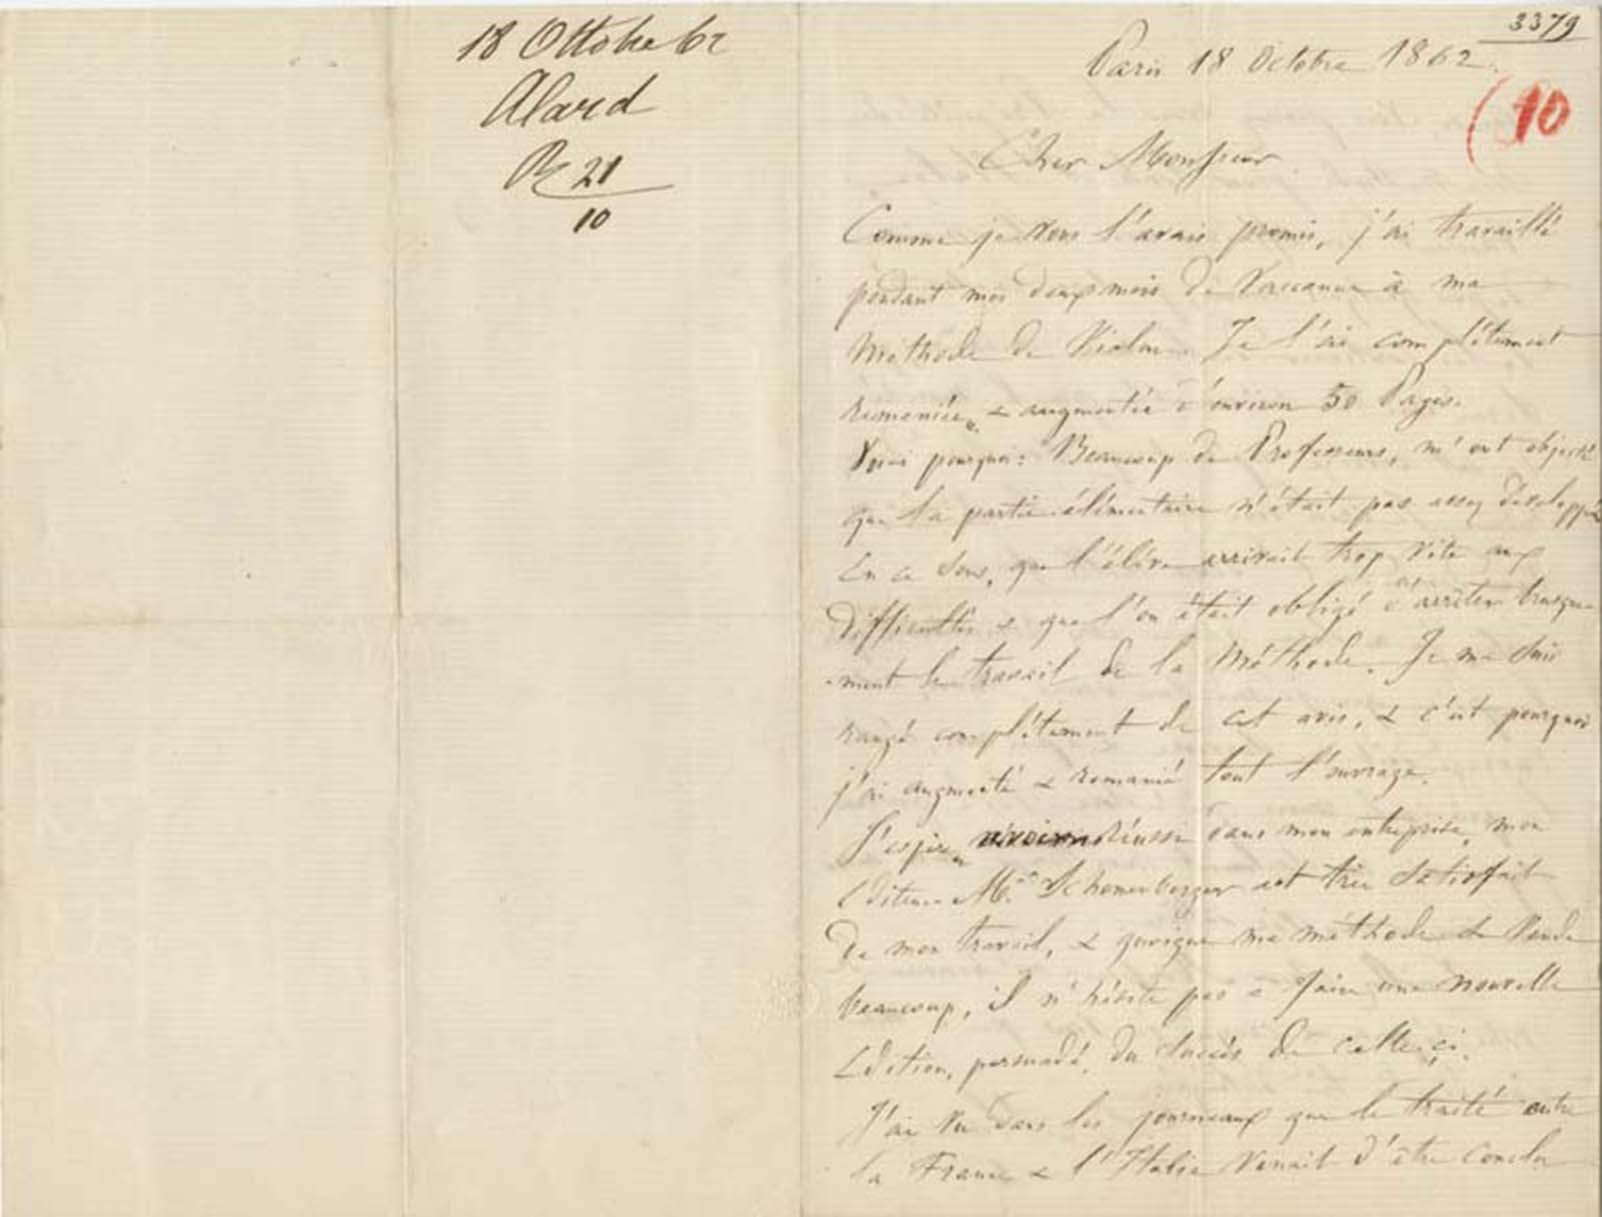 18 Ottobre 62
Alard
R 21
10
3379
Paris 18 Octobre 1862.
(10
Cher Monsieur
Comme je vous l'avais promis, j'ai travaillé
pendant mes deux mois de Vaccance à ma
Méthode de Violon. Je l'ai complétement
remaniée, & augmentée d'environ 50 Pages.
Voici pourquoi: Beaucoup de Professeurs, m'ont objecté
que la partie élémentaire n'était pas assez développée
en ce sens, que l'élève arrivait trop vite aux
difficultés & que l'on était obligé d'arrêter brusque-
-ment le travail de la Méthode. Je me suis
rangé complétement de cet avis, & c'est pourquoi
j'ai augmenté & remanié tout l'ouvrage.
J'espère réussi dans mon entreprise, mon
Editeur Mr. Schonenberger est très satisfait
de mon travail, & quoique ma méthode se vende
beaucoup, il n'hésite pas à faire une nouvelle
Edition, persuadé, du succès de celle ci.
J'ai vu dans les journeaux que le traité entre
la France & l'Italie venait d'être conclu